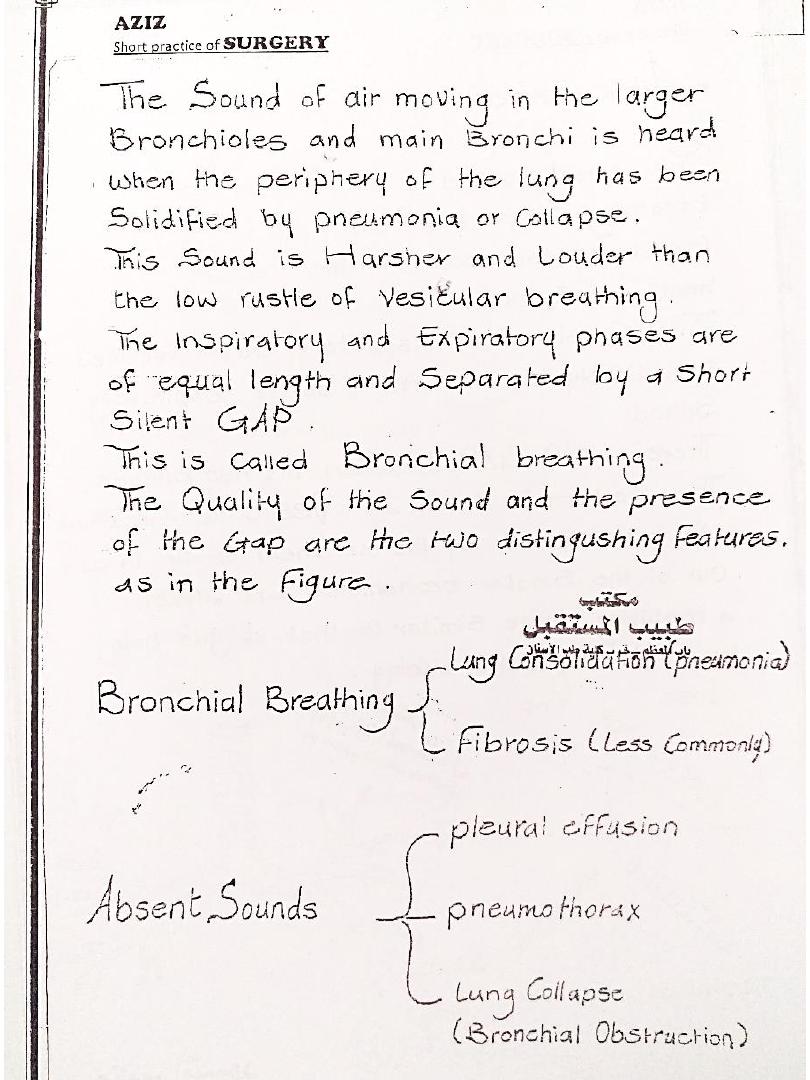 AZIZ
Short practice of SURGERY
The Sound of air moving in the larger
Bronchioles and main Bronchi is heard
when the periphery of the lung has been
Solidified by pneumonia or Collapse.
This Sound is Harsher and Louder than
the low rustle of Vesicular breathing.
The Inspiratory and Expiratory phases are
of equal length and Separated by a Short
Silent GAP.
This is Called Bronchial breathing.
The Quality of the Sound and the presence
of the Gap are the two distingushing Features.
as in the Figure.
مكتب
طبيب المستقبل
Lung Consolidation (pneumonia)
Bronchial Breathing
Fibrosis (Less Commonly)
pleural effusion
Absent Sounds
pneumothorax
Lung Collapse
(Bronchial Obstruction)